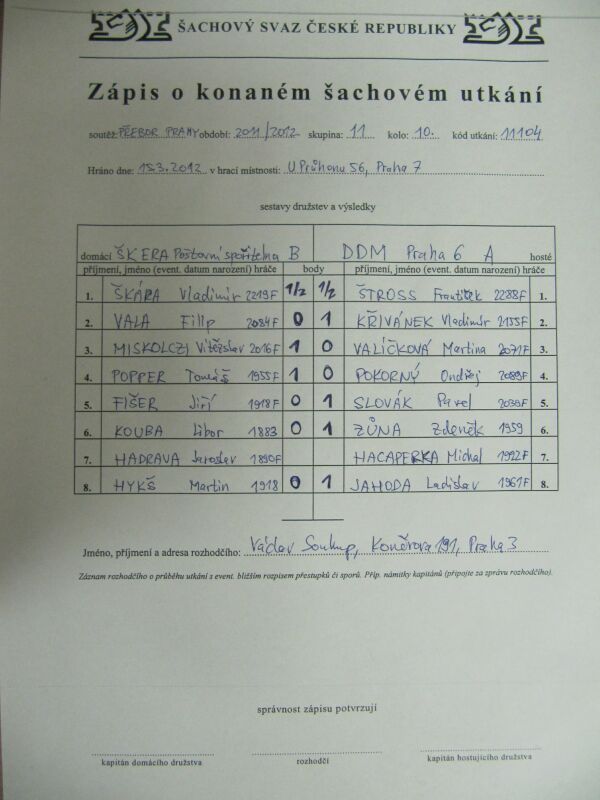 ŠACHOVÝ SVAZ ČESKÉ REPUBLIKY
Zápis o konaném šachovém utkání
soutěž: PŘEBOR PRAHY období: 2011/2012 skupina: 11 kolo: 10. kód utkání: 11104
Hráno dne: 15.3.2012 v hrací místnosti: U Průhonu 56, Praha 7
sestavy družstev a výsledky
domácí ŠK ERA Poštovní spořitelna B DDM Praha 6 A hosté
příjmení, jméno (event. datum narození) hráče body příjmení, jméno (event. datum narození) hráče
1. ŠKÁRA Vladimír 2219F 1/2 1/2 ŠTROSS František 2288F 1.
2. VALA Filip 2084F 0 1 KŘIVÁNEK Vladimír 2155F 2.
3. MISKOLCZI Vítězslav 2016F 1 0 VALÍČKOVÁ Martina 2071F 3.
4. POPPER Tomáš 1955F 1 0 POKORNÝ Ondřej 2089F 4.
5. FIŠER Jiří 1918F 0 1 SLOVÁK Pavel 2039F 5.
6. KOUBA Libor 1883 0 1 ZŮNA Zdeněk 1959 6.
7. HADRAVA Jaroslav 1890F HACAPERKA Michal 1922F 7.
8. HYKŠ Martin 1918 0 1 JAHODA Ladislav 1961F 8.
Jméno, příjmení a adresa rozhodčího: Václav Soukup, Koněvova 191, Praha 3
Záznam rozhodčího o průběhu utkání s event. bližším rozpisem přestupků či sporů. Příp. námitky kapitánů (připojte za zprávu rozhodčího).
správnost zápisu potvrzují
kapitán domácího družstva rozhodčí kapitán hostujícího družstva